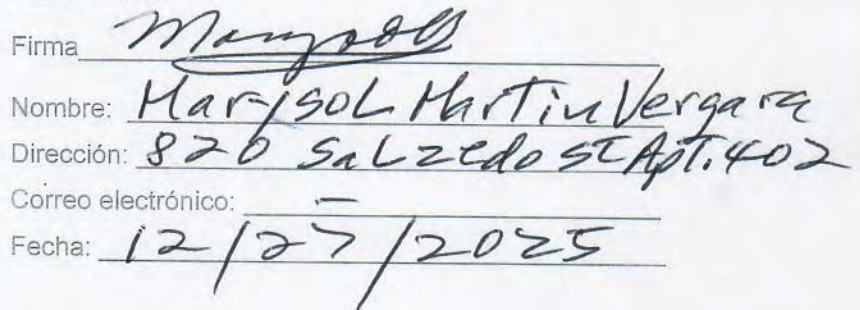 Firma
Nombre: Marisol Martin Vergara
Dirección: 820 Salzedo St Apt. 402
Correo electrónico: —
Fecha: 12/27/2025